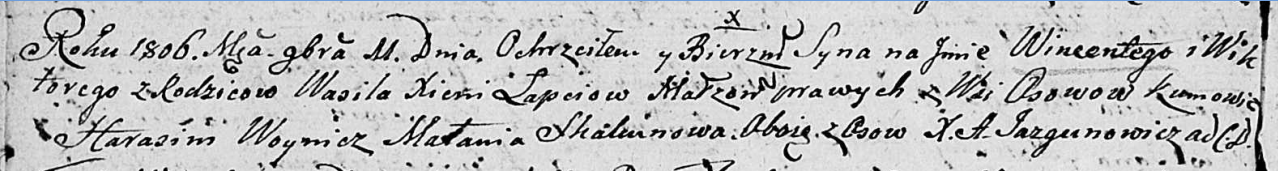 Roku 1806. Mca. gbra 11. Dnia. Ochrzciłem y Bierzm Syna na Jmie Wincentego i Wik
torego z Rodzicow Wasila Xieni Łapciow Małzon prawych z Wsi Osowow Kumowie
Harasim Woynicz Małania Skakunowa. Oboie z Osow X. A Jazgunowicz ad